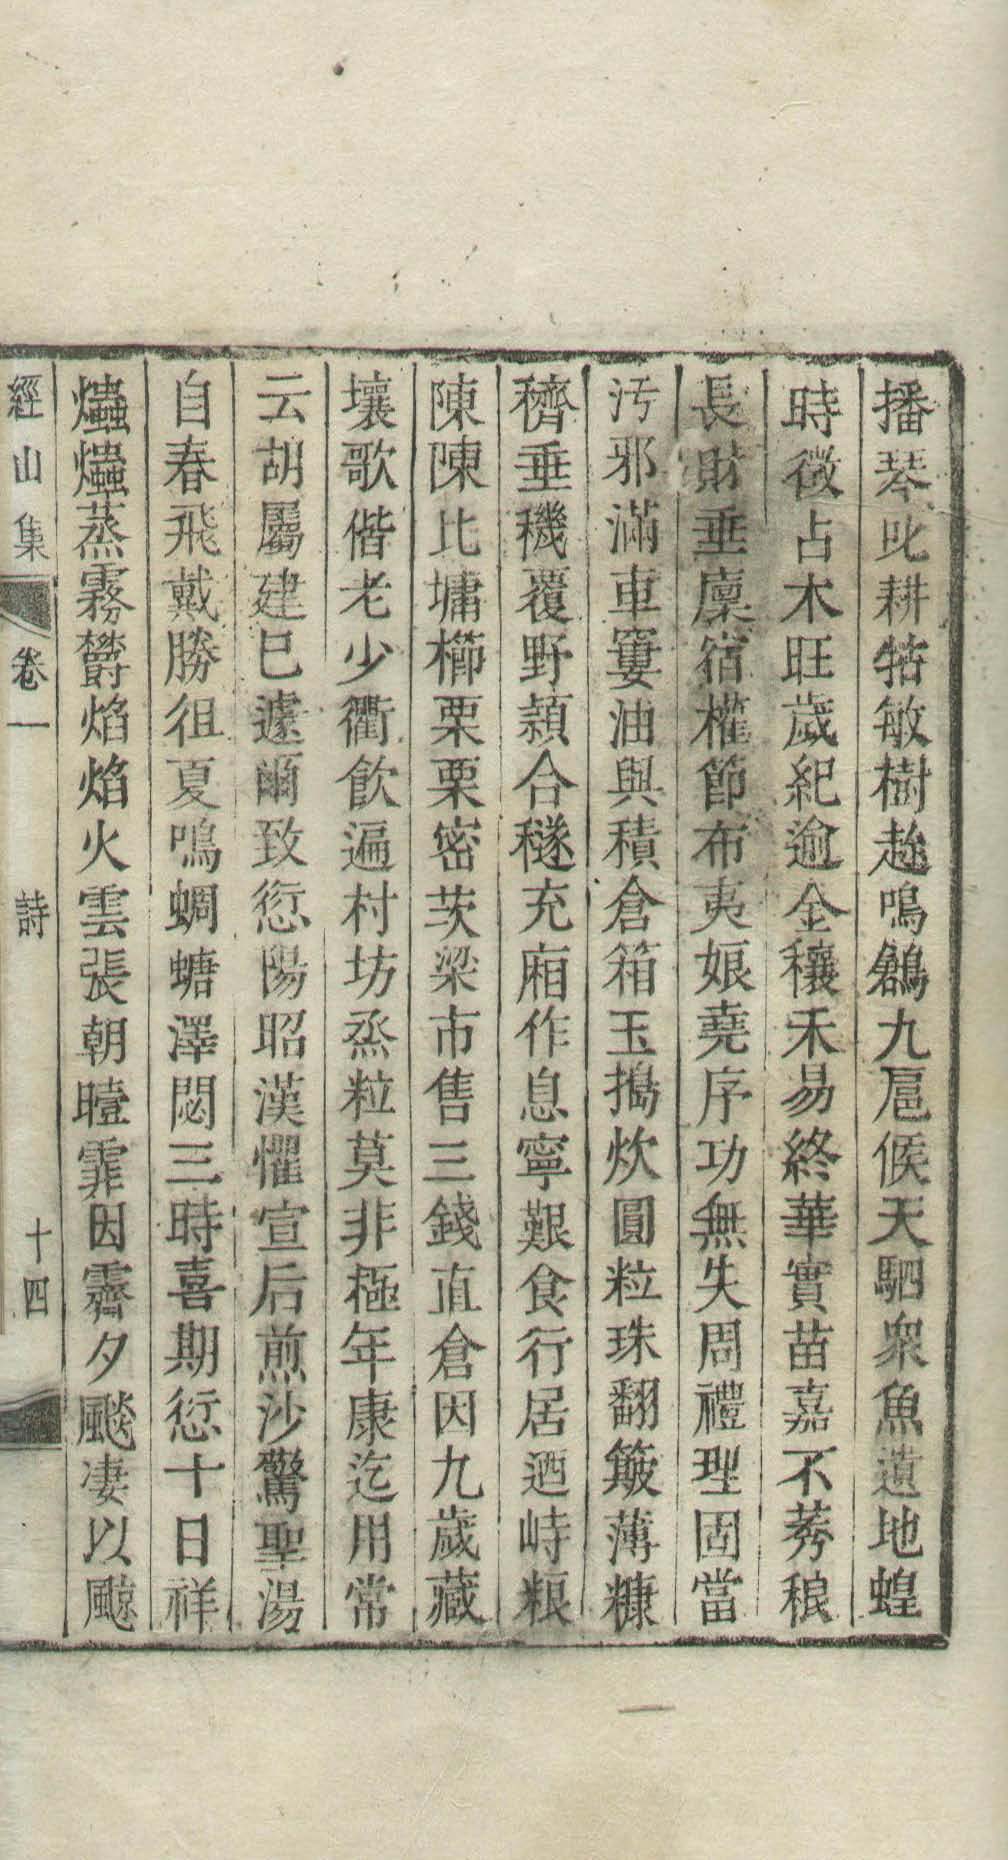 播琴叱耕牿敏樹趁鳴鶬九扈候天駟衆魚遺地蝗
時徵占木旺歲紀逾全穰禾易終華實苗嘉不莠稂
長財垂廩宿權節布夷娘堯序功無失周禮理固當
汚邪滿車簍油與積倉箱玉搗炊圓粒珠翻簸薄糠
穧垂穖覆野潁合穟充廂作息寧艱食行居迺峙粻
陳陳比墉櫛栗栗密茨梁市售三錢直倉因九歲藏
壤歌偕老少衢飲遍村坊烝粒莫非極年康迄用常
云胡屬建巳遽爾致愆陽昭漢懼宣后煎沙驚聖湯
自春飛戴勝徂夏鳴蜩螗澤閟三時喜期愆十日祥
爞爞蒸霧欝焰焰火雲張朝曀霏因霽夕飈凄以颹
經山集 卷一 詩 十四